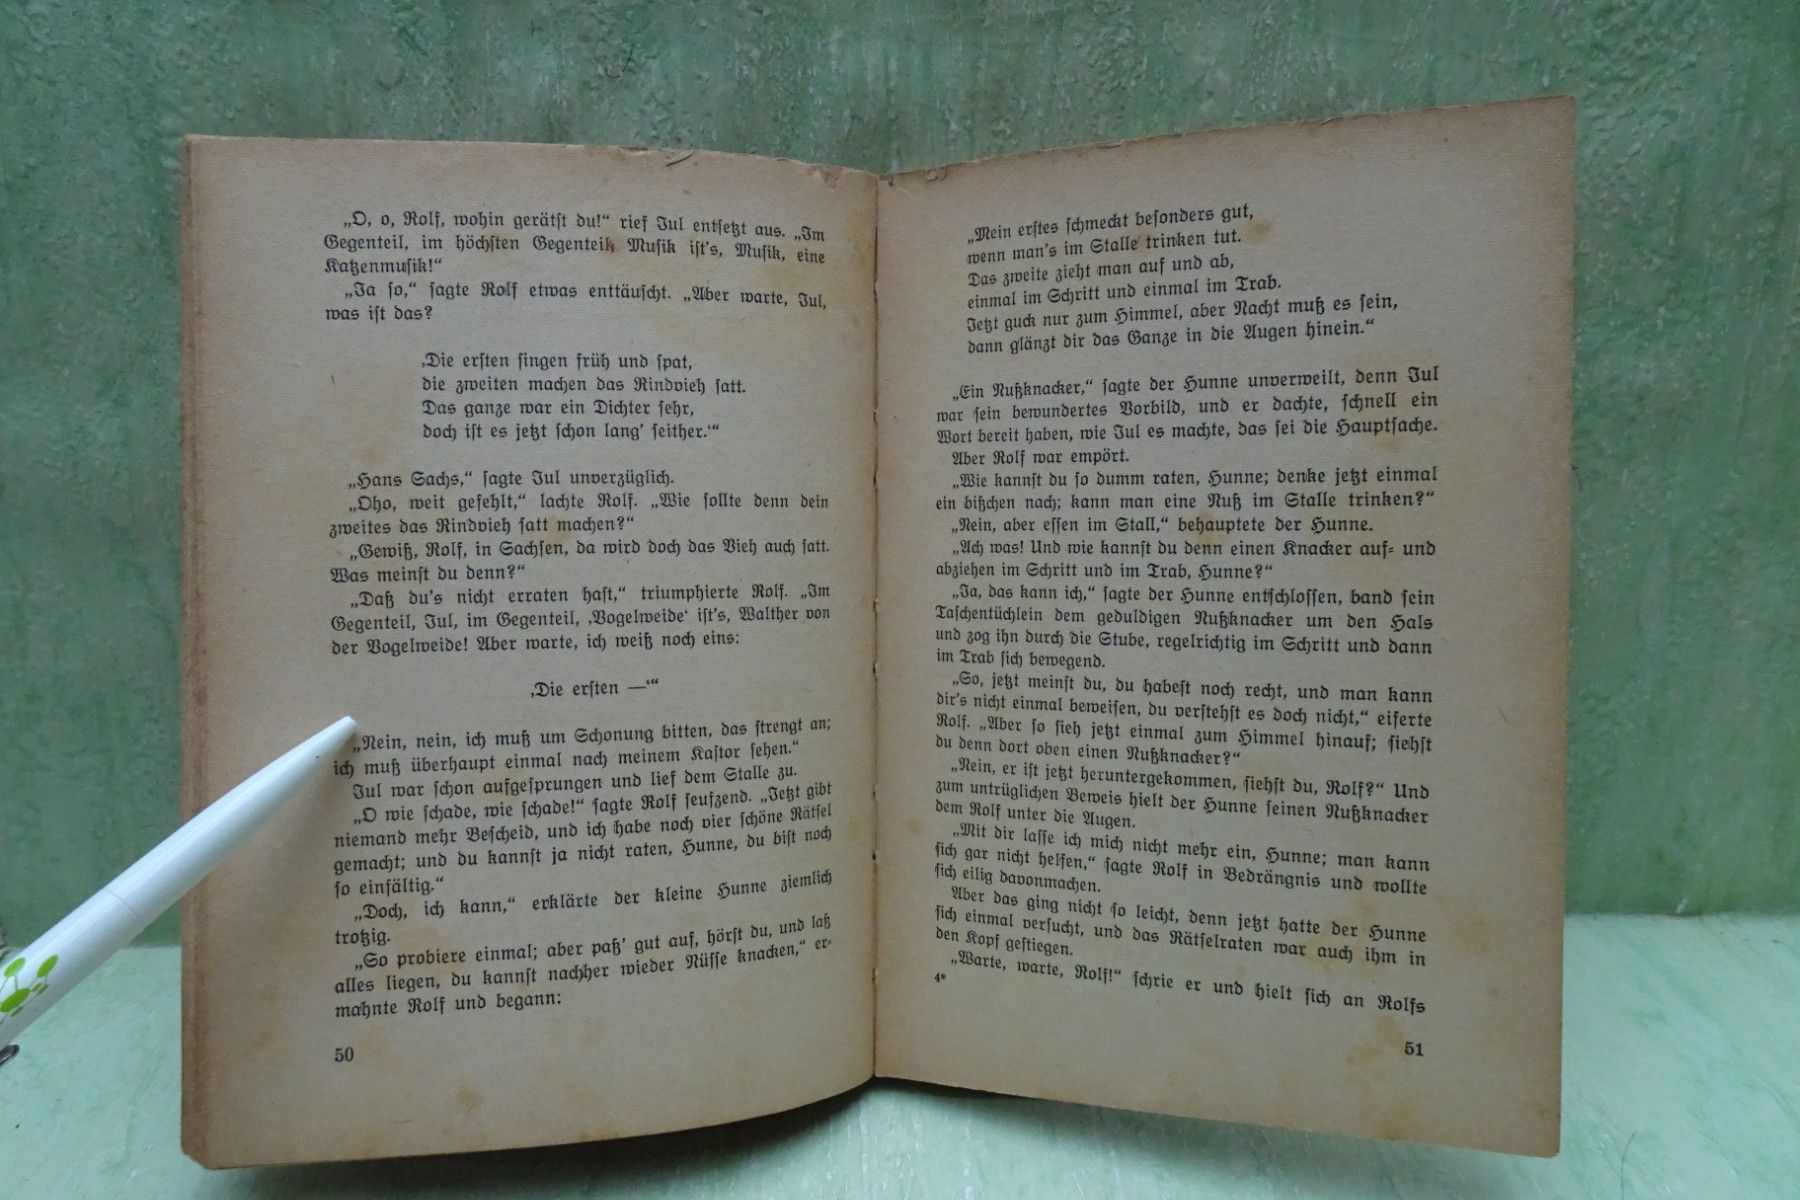 „O, o, Rolf, wohin gerätst du!“ rief Jul entsetzt aus. „Im
Gegenteil, im höchsten Gegenteil, Musik ist's, Musik, eine
Katzenmusik!“
„Ja so,“ sagte Rolf etwas enttäuscht. „Aber warte, Jul,
was ist das?
‚Die ersten singen früh und spat,
die zweiten machen das Rindvieh satt.
Das ganze war ein Dichter sehr,
doch ist es jetzt schon lang' seither.‘“
„Hans Sachs,“ sagte Jul unverzüglich.
„Oho, weit gefehlt,“ lachte Rolf. „Wie sollte denn dein
zweites das Rindvieh satt machen?“
„Gewiß, Rolf, in Sachsen, da wird doch das Vieh auch satt.
Was meinst du denn?“
„Daß du's nicht erraten hast,“ triumphierte Rolf. „Im
Gegenteil, Jul, im Gegenteil, ‚Vogelweide‘ ist's, Walther von
der Vogelweide! Aber warte, ich weiß noch eins:
‚Die ersten —‘“
„Nein, nein, ich muß um Schonung bitten, das strengt an;
ich muß überhaupt einmal nach meinem Kastor sehen.“
Jul war schon aufgesprungen und lief dem Stalle zu.
„O wie schade, wie schade!“ sagte Rolf seufzend. „Jetzt gibt
niemand mehr Bescheid, und ich habe noch vier schöne Rätsel
gemacht; und du kannst ja nicht raten, Hunne, du bist noch
so einfältig.“
„Doch, ich kann,“ erklärte der kleine Hunne ziemlich
trotzig.
„So probiere einmal; aber paß' gut auf, hörst du, und laß
alles liegen, du kannst nachher wieder Nüsse knacken,“ er-
mahnte Rolf und begann:
50
„Mein erstes schmeckt besonders gut,
wenn man's im Stalle trinken tut.
Das zweite zieht man auf und ab,
einmal im Schritt und einmal im Trab.
Jetzt guck nur zum Himmel, aber Nacht muß es sein,
dann glänzt dir das Ganze in die Augen hinein.“
„Ein Nußknacker,“ sagte der Hunne unverweilt, denn Jul
war sein bewundertes Vorbild, und er dachte, schnell ein
Wort bereit haben, wie Jul es machte, das sei die Hauptsache.
Aber Rolf war empört.
„Wie kannst du so dumm raten, Hunne; denke jetzt einmal
ein bißchen nach; kann man eine Nuß im Stalle trinken?“
„Nein, aber essen im Stall,“ behauptete der Hunne.
„Ach was! Und wie kannst du denn einen Knacker auf- und
abziehen im Schritt und im Trab, Hunne?“
„Ja, das kann ich,“ sagte der Hunne entschlossen, band sein
Taschentüchlein dem geduldigen Nußknacker um den Hals
und zog ihn durch die Stube, regelrichtig im Schritt und dann
im Trab sich bewegend.
„So, jetzt meinst du, du habest noch recht, und man kann
dir's nicht einmal beweisen, du verstehst es doch nicht,“ eiferte
Rolf. „Aber so sieh jetzt einmal zum Himmel hinauf; siehst
du denn dort oben einen Nußknacker?“
„Nein, er ist jetzt heruntergekommen, siehst du, Rolf?“ Und
zum untrüglichen Beweis hielt der Hunne seinen Nußknacker
dem Rolf unter die Augen.
„Mit dir lasse ich mich nicht mehr ein, Hunne; man kann
sich gar nicht helfen,“ sagte Rolf in Bedrängnis und wollte
sich eilig davonmachen.
Aber das ging nicht so leicht, denn jetzt hatte der Hunne
sich einmal versucht, und das Rätselraten war auch ihm in
den Kopf gestiegen.
„Warte, warte, Rolf!“ schrie er und hielt sich an Rolfs
4*
51